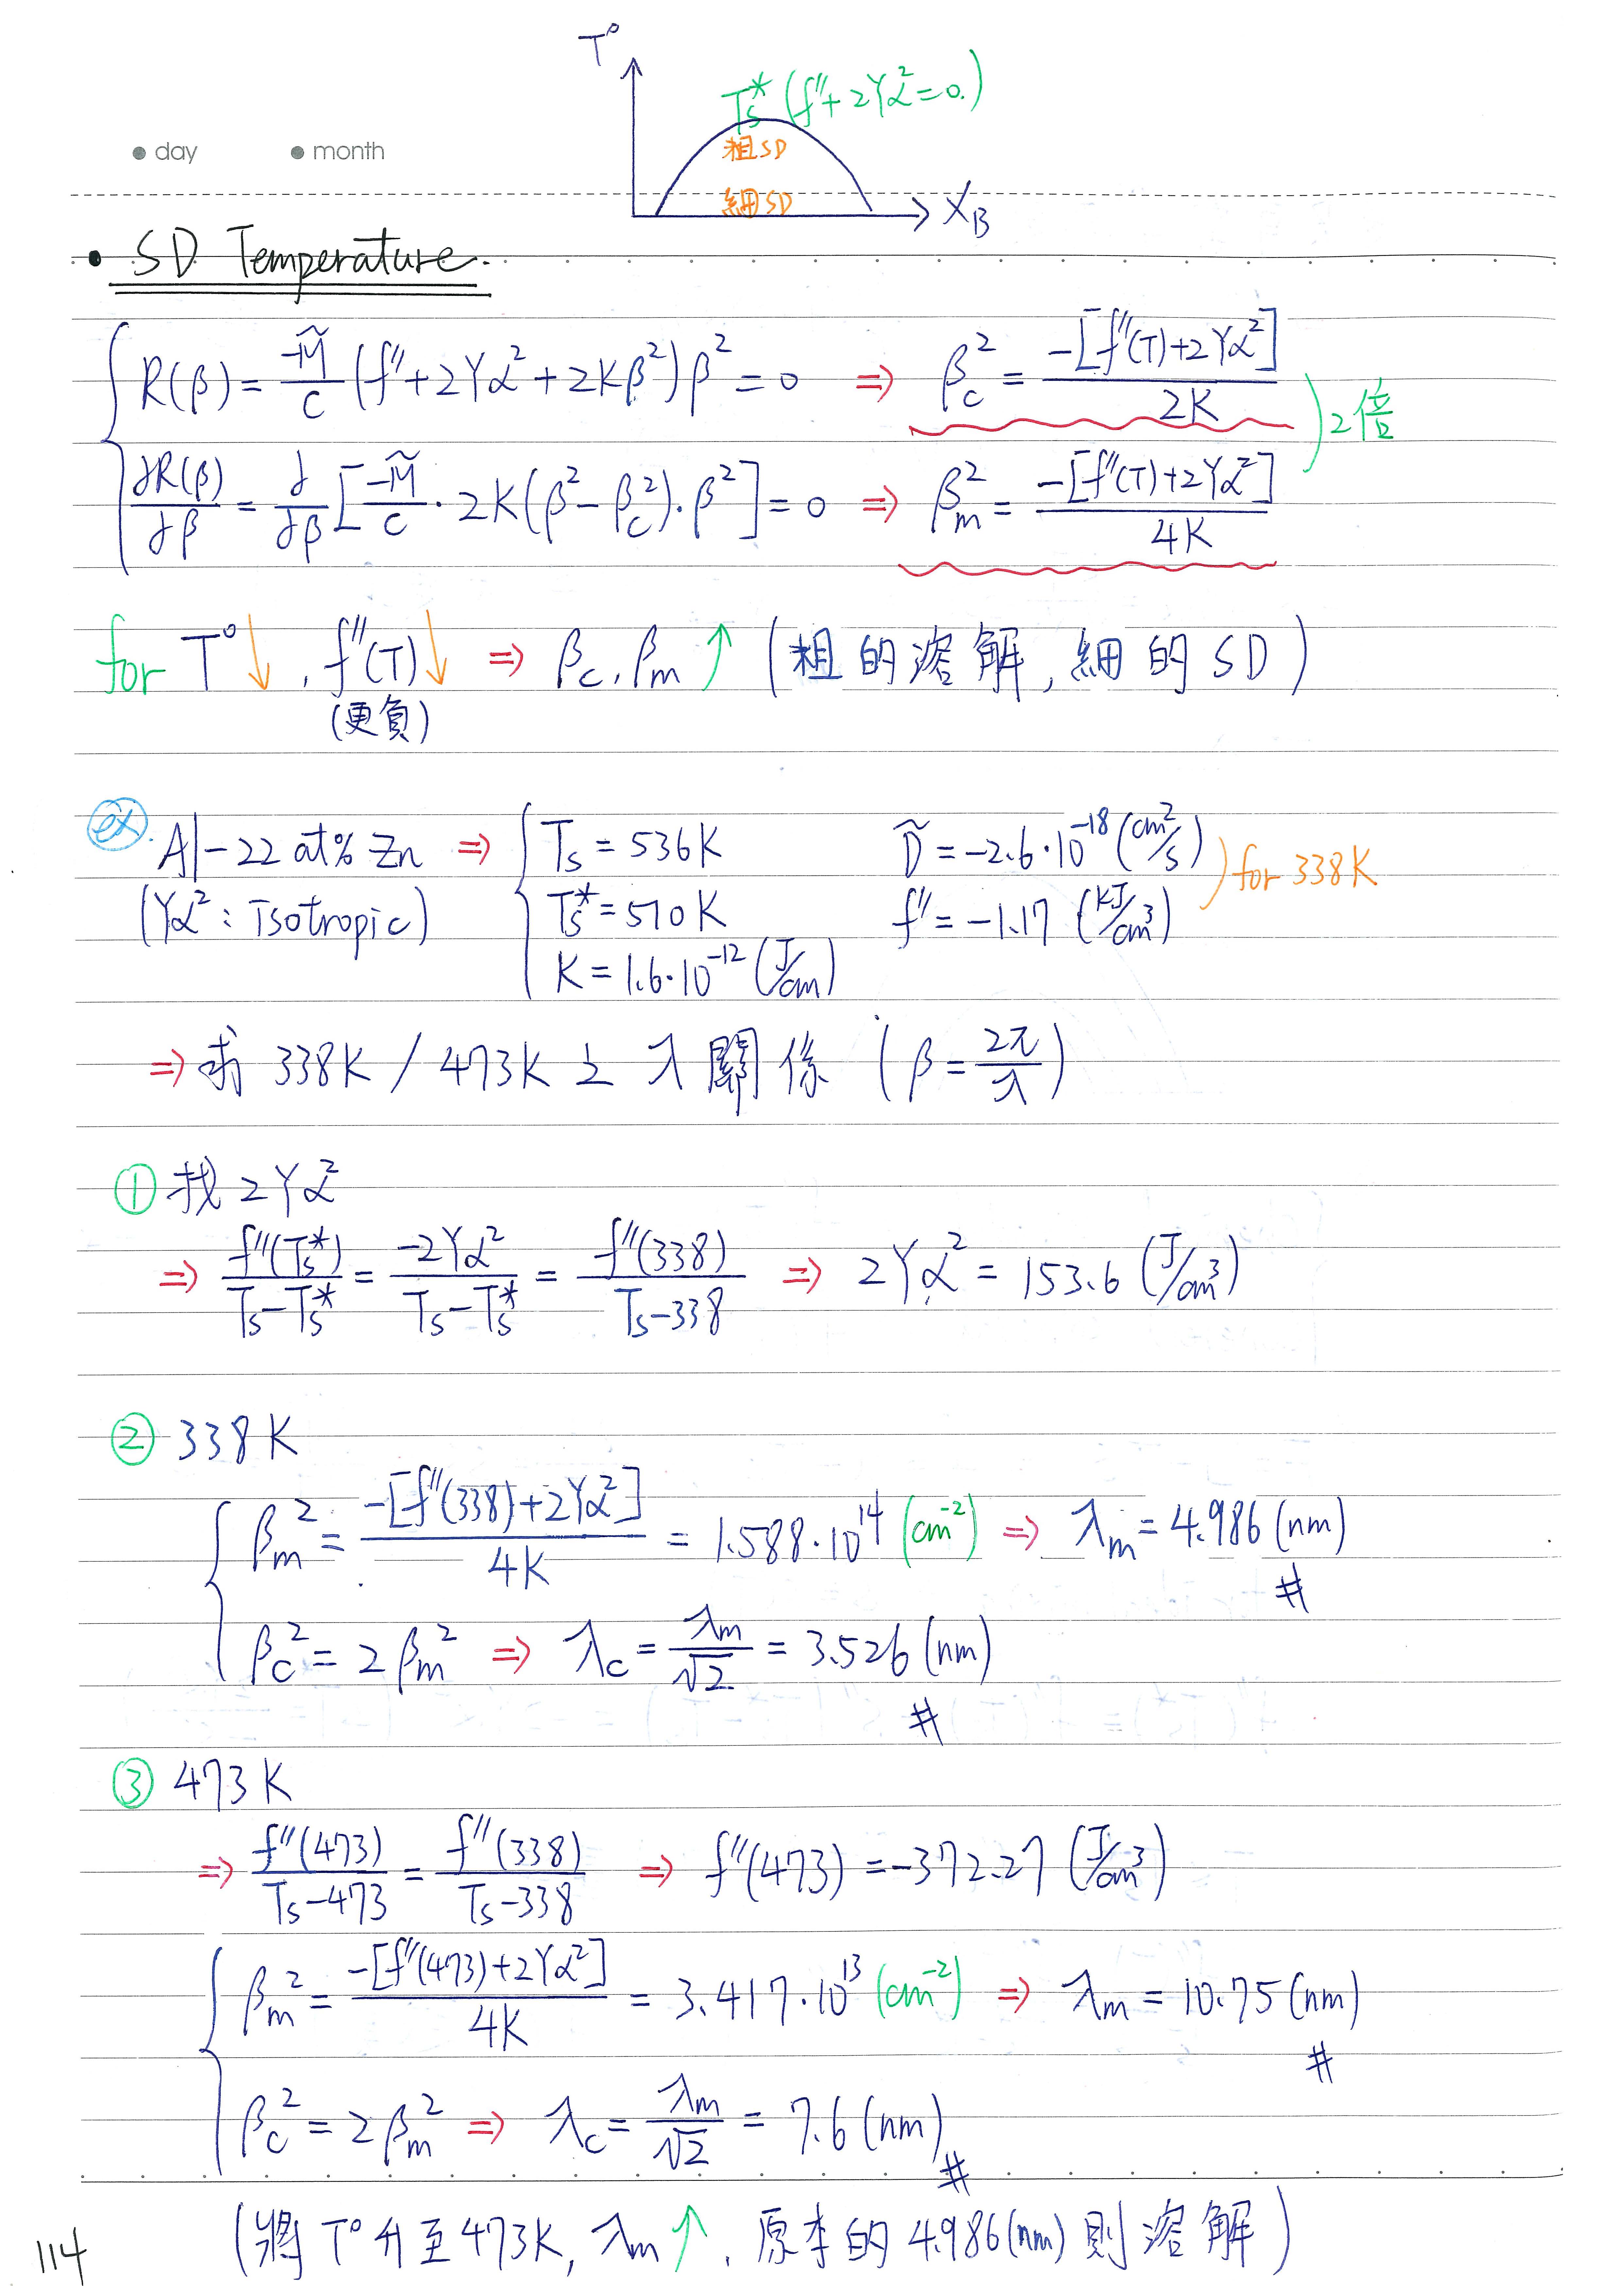 T°
Ts* (f''+2Yα²=0.)
粗SD
細SD
X_B
• day • month
• SD Temperature.
R(β) = -M̃/C (f''+2Yα²+2Kβ²)β² = 0 ⇒ β_c² = -[f''(T)+2Yα²]/2K
)2倍
∂R(β)/∂β = ∂/∂β [-M̃/C · 2K(β²-β_c²)·β²] = 0 ⇒ β_m² = -[f''(T)+2Yα²]/4K
for T°↓, f''(T)↓ ⇒ β_c, β_m ↑ (粗的溶解, 細的SD)
(更負)
ex. Al-22 at% Zn ⇒ { Ts = 536K D̃ = -2.6·10⁻¹⁸ (cm²/s) ) for 338K
(Yα²: Isotropic) Ts* = 510K f'' = -1.17 (kJ/cm³)
K = 1.6·10⁻¹² (J/cm)
⇒ 求 338K / 473K 之 λ 關係 (β = 2π/λ)
① 找 2Yα²
⇒ f''(Ts*)/(Ts-Ts*) = -2Yα²/(Ts-Ts*) = f''(338)/(Ts-338) ⇒ 2Yα² = 153.6 (J/cm³)
② 338K
β_m² = -[f''(338)+2Yα²]/4K = 1.588·10¹⁴ (cm⁻²) ⇒ λ_m = 4.986 (nm) #
β_c² = 2β_m² ⇒ λ_c = λ_m/√2 = 3.526 (nm) #
③ 473K
⇒ f''(473)/(Ts-473) = f''(338)/(Ts-338) ⇒ f''(473) = -372.27 (J/cm³)
β_m² = -[f''(473)+2Yα²]/4K = 3.417·10¹³ (cm⁻²) ⇒ λ_m = 10.75 (nm) #
β_c² = 2β_m² ⇒ λ_c = λ_m/√2 = 7.6 (nm) #
(將 T° 升至 473K, λ_m ↑, 原本的 4.986(nm) 則溶解)
114